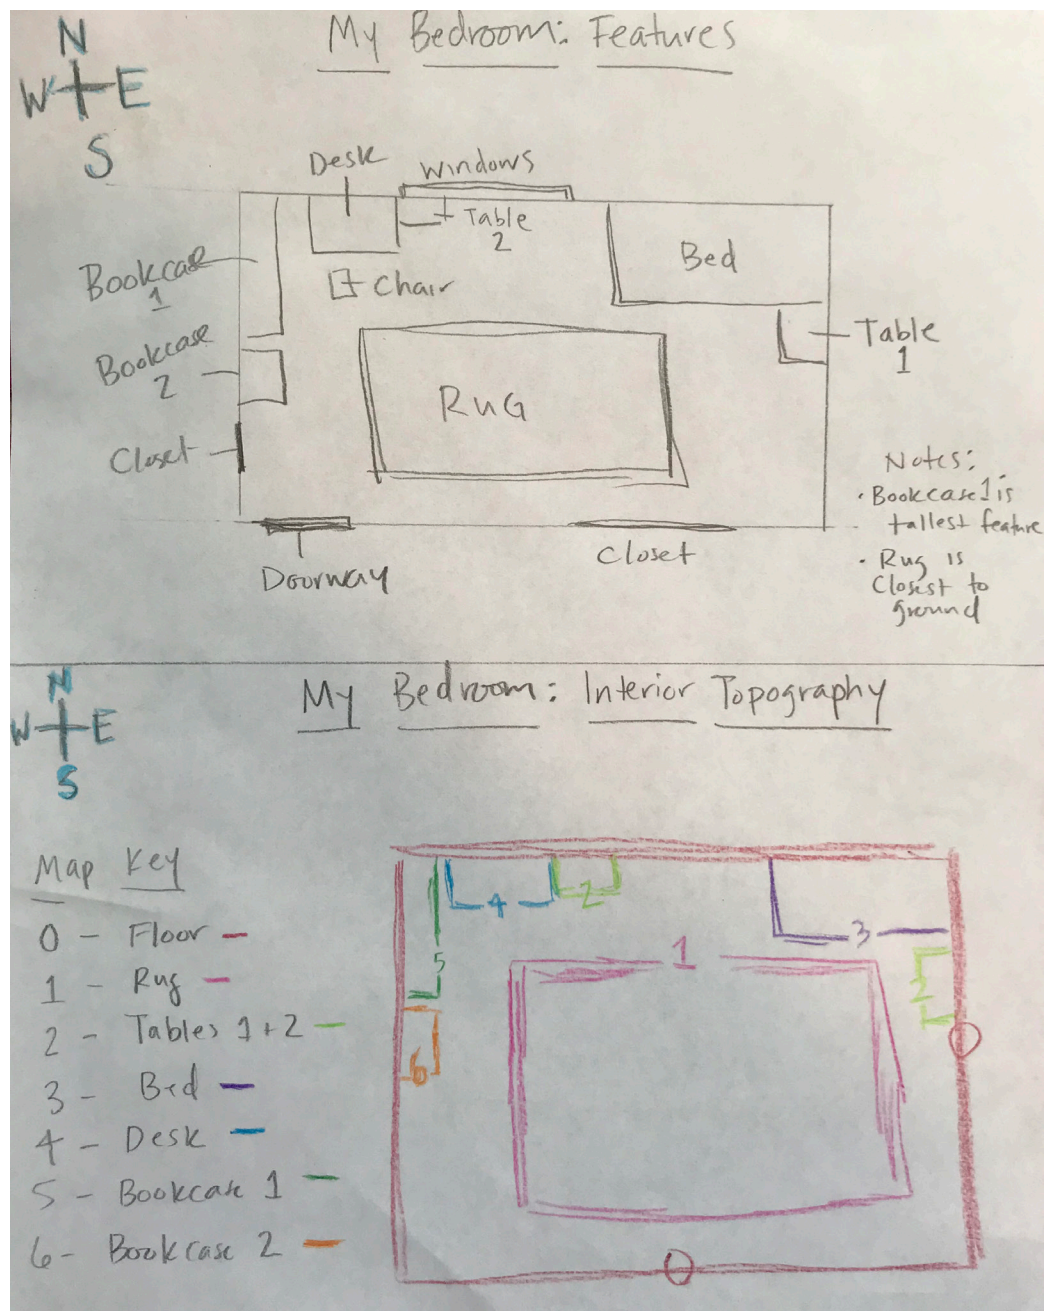 N
My Bedroom: Features
W E
S
Desk
Windows
Table
2
Bed
Bookcase
1
Chair
Bookcase
2
Table
1
RuG
Closet
Notes:
• Bookcase 1 is
tallest feature
• Rug is
Closest to
ground
Closet
Doorway
N
My Bedroom: Interior Topography
W E
S
Map Key
0 - Floor
1 - Rug
2 - Tables 1 + 2
3 - Bed
4 - Desk
5 - Bookcase 1
6 - Bookcase 2
4
2
3
1
5
2
6
0
0